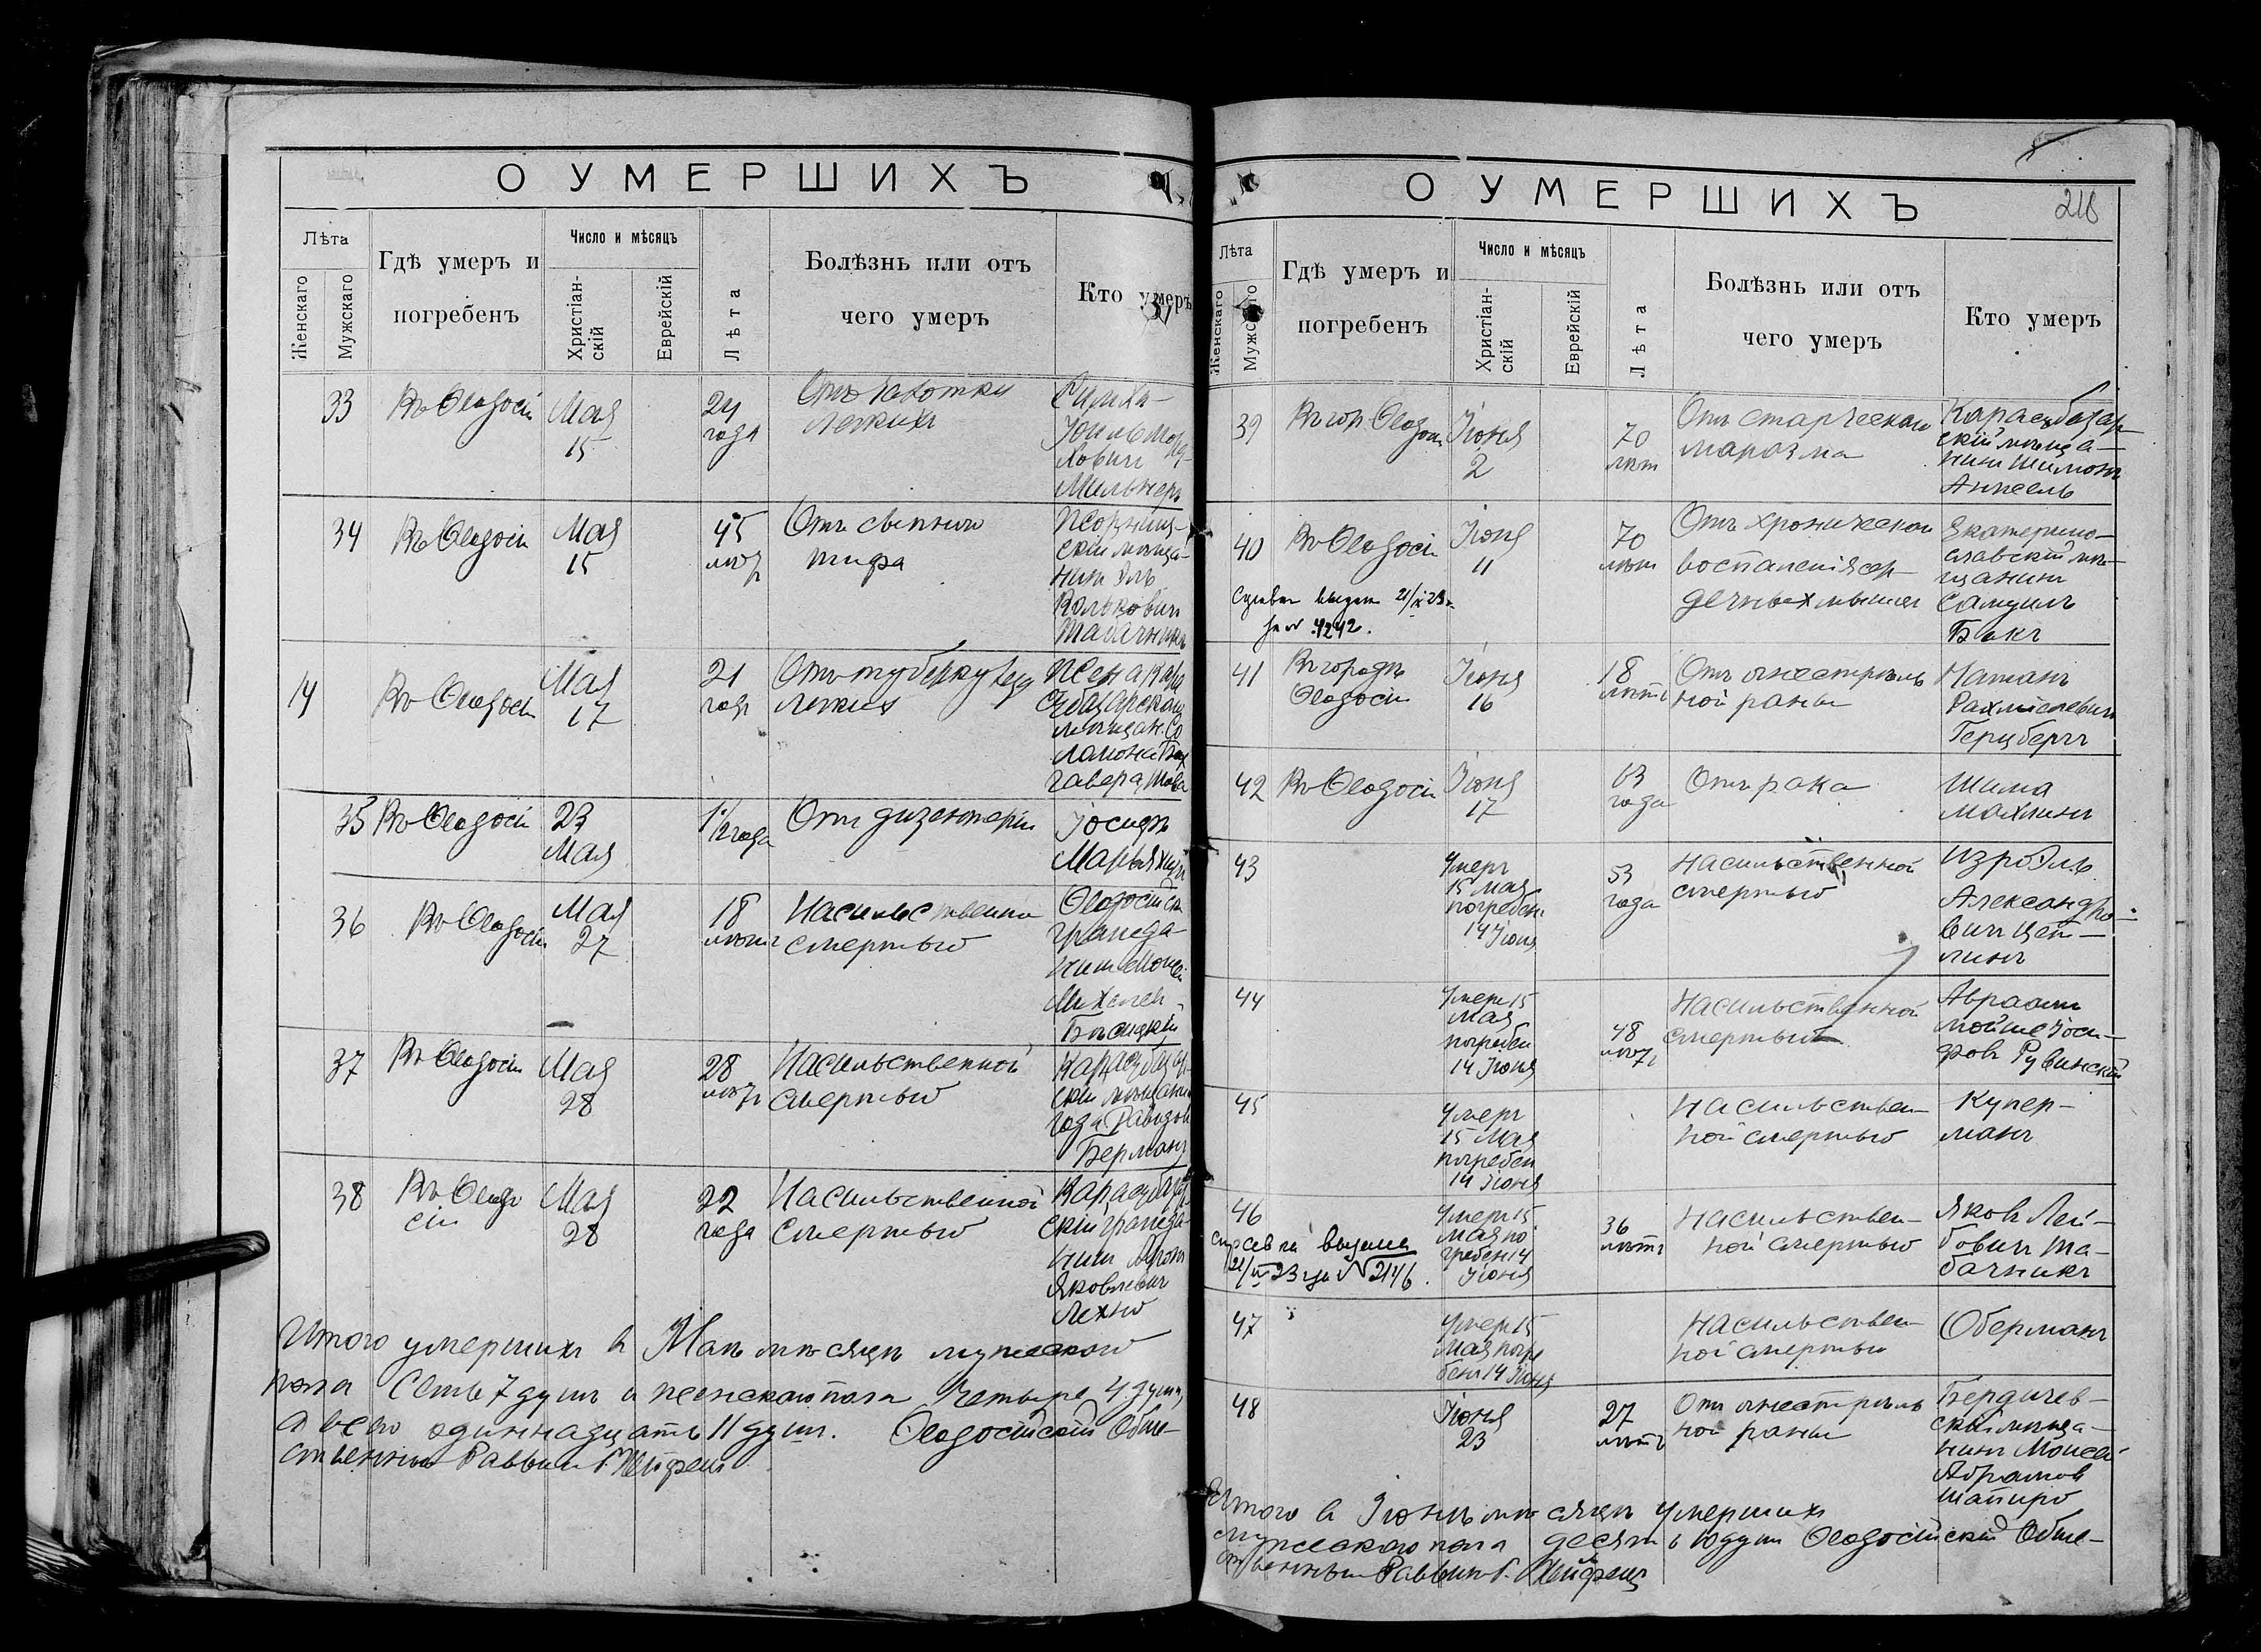 О УМЕРШИХЪ
Лѣта
Женскаго
Мужскаго
Гдѣ умеръ и
погребенъ
Число и мѣсяцъ
Христіан-
скій
Еврейскій
Лѣта
Болѣзнь или отъ
чего умеръ
Кто умеръ
33
Въ Ѳеодосіи
Мая
15
24
года
Отъ чахотки
легкихъ
Симха-
Іоиль Морд-
ховичъ
Мильнеръ
34
Въ Ѳеодосіи
Мая
15
45
лѣтъ
Отъ сыпного
тифа
скій мѣща-
нинъ Эль
Вольковичъ
Табачникъ
14
Въ Ѳеодосіи
Мая
17
21
года
Отъ туберкулеза
легкихъ
Жена Кара
субазарскаго
мѣщан. Со
ломона
35
Въ Ѳеодосіи
23
Мая
1 1/2 года
Отъ дизентеріи
Іосифъ
36
Въ Ѳеодосіи
Мая
27
18
лѣтъ
Насильственно
смертью
Ѳеодосійск
гражда-
нинъ Моисей
Михелев
37
Въ Ѳеодосіи
Мая
28
28
лѣтъ
Насильственной
смертью
Карасубазар
скій мѣщанин
Давидов
Берманъ
38
Въ Ѳеодо
сіи
Мая
28
22
года
Насильственной
смертью
Карасубазар
скій гражда-
нинъ Арон
Яковлевич
Лехно
Итого умершихъ въ Маѣ мѣсяцѣ мужескаго
пола Семь 7 душъ и женскаго пола Четыре 4 души,
а всего одиннадцать 11 душъ. Ѳеодосійскій Обще-
ственный Раввинъ
О УМЕРШИХЪ
218
Лѣта
Женскаго
Мужскаго
Гдѣ умеръ и
погребенъ
Число и мѣсяцъ
Христіан-
скій
Еврейскій
Лѣта
Болѣзнь или отъ
чего умеръ
Кто умеръ
39
Въ гор. Ѳеодосіи
Іюня
2
70
лѣт
Отъ старческаго
маразма
Карасубазар-
скій мѣща-
нинъ Шимонъ
Анксель
40
Въ Ѳеодосіи
Іюня
11
70
лѣтъ
Отъ хроническаго
воспаленія сер-
дечныхъ мышцъ
Екатерино-
славскій мѣ-
щанинъ
Самуилъ
Бакъ
за № 4242.
41
Въ городѣ
Ѳеодосіи
Іюня
16
18
лѣтъ
Отъ огнестрѣль
ной раны
Натанъ
Рахмiелевичъ
Герцбергъ
42
Въ Ѳеодосіи
Іюня
17
63
года
Отъ рака
Шима
Махлинъ
43
Умеръ
15 Мая
погребенъ
14 Іюня
53
года
Насильственной
смертью
Изроэль
Александро-
вичъ Цет-
линъ
44
Умеръ 15
Мая
погребен
14 Іюня
48
лѣтъ
Насильственной
смертью
Авраамъ
Мойше Іоси-
фовъ Рувинскій
45
Умеръ
15 Мая
погребен
14 Іюня
Насильствен-
ной смертью
Купер-
манъ
46
Умеръ 15
Мая по
гребен 14
Іюня
36
лѣтъ
Насильствен-
ной смертью
Яковъ Лей-
бовичъ Та-
бачникъ
Справка выдана
47
Умеръ 15
Мая погре
бенъ 14 Іюня
Насильствен-
ной смертью
Оберманъ
48
Іюня
23
27
лѣтъ
Отъ огнестрѣль
ной раны
Бердичев-
скій мѣща-
нинъ Моисей
Абрамов
Шапиро
Итого въ Іюнѣ мѣсяцѣ умершихъ
мужескаго пола десять 10 душъ Ѳеодосійскій Обще-
ственный Раввинъ